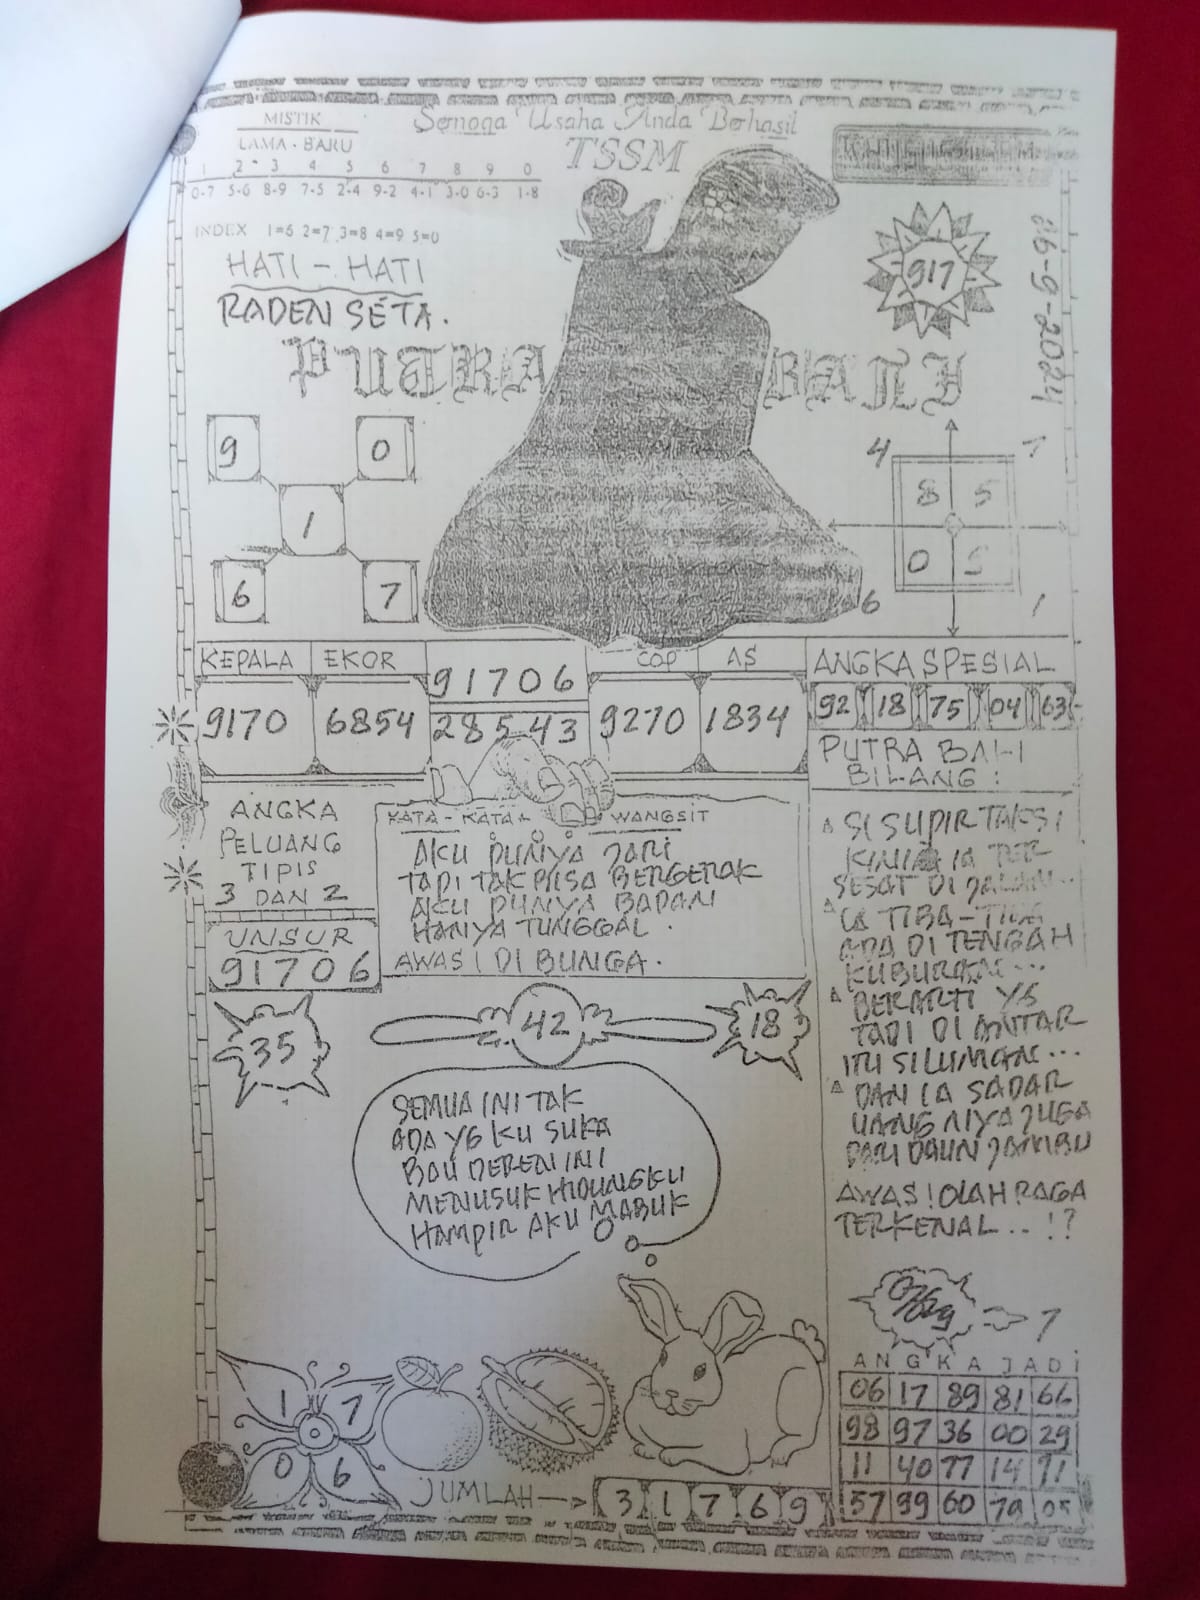 MISTIK
LAMA - BARU
1 2 3 4 5 6 7 8 9 0
0-7 5-6 8-9 7-5 2-4 9-2 4-1 3-0 6-3 1-8
INDEX 1=6 2=7 3=8 4=9 5=0
Semoga Usaha Anda Berhasil
TSSM
HATI - HATI
RADEN SETA.
PUTRA BALI
917
16-9-2024
9 0
1
6 7
4 7
8 5
0 5
6 1
KEPALA EKOR
9170 6854
91706
28543
COP AS
9270 1834
ANGKA SPESIAL
92 18 75 04 63
PUTRA BALI
BILANG :
ANGKA
PELUANG
TIPIS
3 DAN 2
UNSUR
91706
KATA - KATA WANGSIT
AKU PUNYA JARI
TAPI TAK BISA BERGERAK
AKU PUNYA BADAN
HANYA TUNGGAL .
AWAS! DI BUNGA.
SI SUPIR TAKSI
KINI IA TER
SESAT DI JALAN...
IA TIBA-TIBA
ADA DI TENGAH
KUBURAN...
BERARTI YG
TADI DI ANTAR
ITU SILUMAN...
DAN IA SADAR
UANG NIYA JUGA
DARI DAUN JAMBU
AWAS! OLAH RAGA
TERKENAL...!?
35 42 18
SEMUA INI TAK
ADA YG KU SUKA
BAU DEREN INI
MENUSUK HIDUNGKU
HAMPIR AKU MABUK
7
ANGKA JADI
06 17 89 81 66
98 97 36 00 29
11 40 77 14 71
57 99 60 79 05
1 7
0 6
JUMLAH
3 1 7 6 9